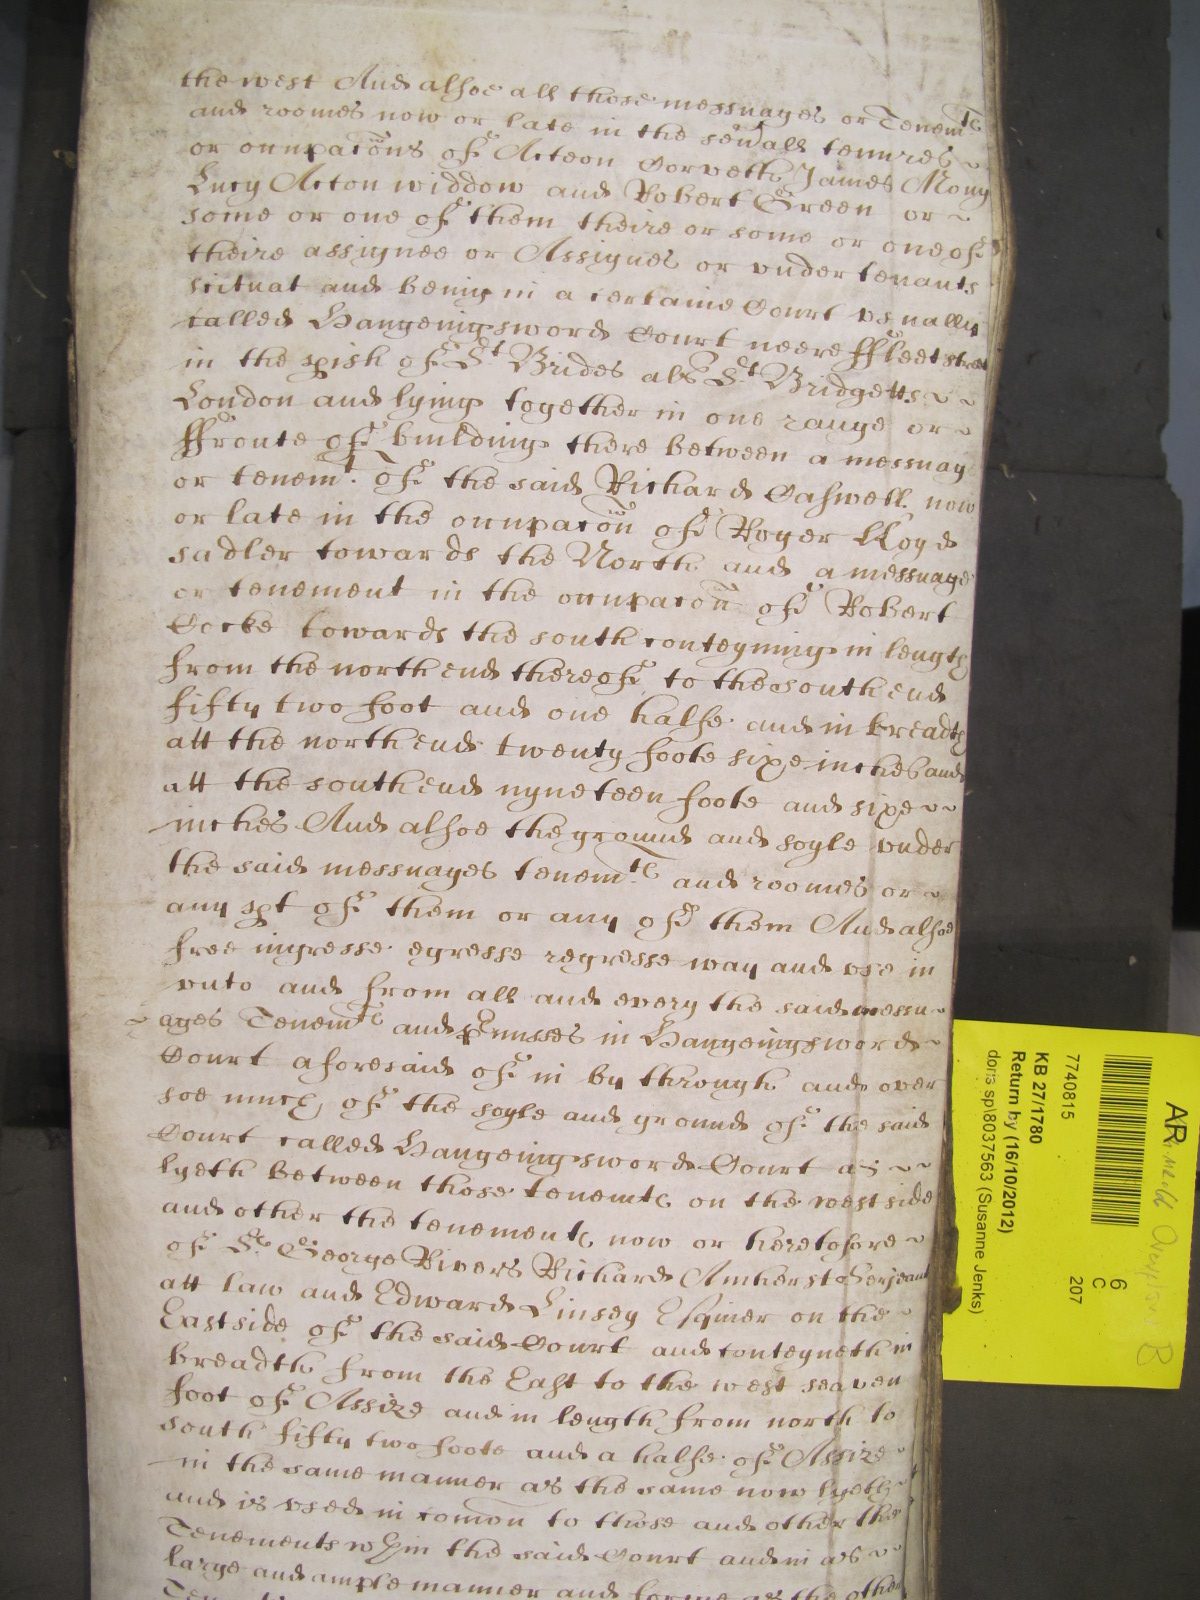 the west And alsoe all those messuages or Tenemtc
and roomes now or late in the sevall tenures ~
or occupacons of Acteon Corvett James Mony
Lucy Acton widdow and Robert Green or ~
some or one of them theire or some or one of
theire assignee or Assignes or vnder tenants
scituat and being in a certaine Court vsually
called Hangeingsword Court neere ffleetstreet
in the pish of St Brides als St Bridgetts ~ ~
London and lying together in one range or ~
ffronte of building there between a messuag
or tenemt. of the said Richard Caswell now
or late in the occupacon of Roger
sadler towards the North and a messuage
or tenement in the occupacon of Robert
Cocke towards the south conteyning in length
from the north end thereof to the south end
fifty two foot and one halfe and in breadth
att the north end twenty foote sixe inches and
att the south end nyneteen foote and sixe ~ ~
inches And alsoe the ground and soyle vnder
the said messuages tenemtc and roomes or ~
any pt of them or any of them And alsoe
free ingresse egresse regresse way and vse in
vnto and from all and every the said messu ~
~ ages Tenemtc and pmisses in Hangeingsword ~
Court aforesaid of in by through and over
soe much of the soyle and ground of the said
Court called Hangeingsword Court as ~ ~
lyeth between those tenemtc on the west side
and other the tenementc now or heretofore ~
of Sr George Rivers Richard Amherst Serjeant
att law and Edward Linsey Esquier on the ~
East side of the said Court and conteyneth in
breadth from the East to the west seaven
foot of Assize and in length from north to
south fifty two foote and a halfe of Assize ~
in the same manner as the same now lyeth ~
and is vsed in comon to those and other the
Tenements wthin the said Court and in as ~ ~
large and ample manner and forme as the other
AR
6
C
207
7740815
KB 27/1780
Return by (16/10/2012)
doris sp\8037563 (Susanne Jenks)